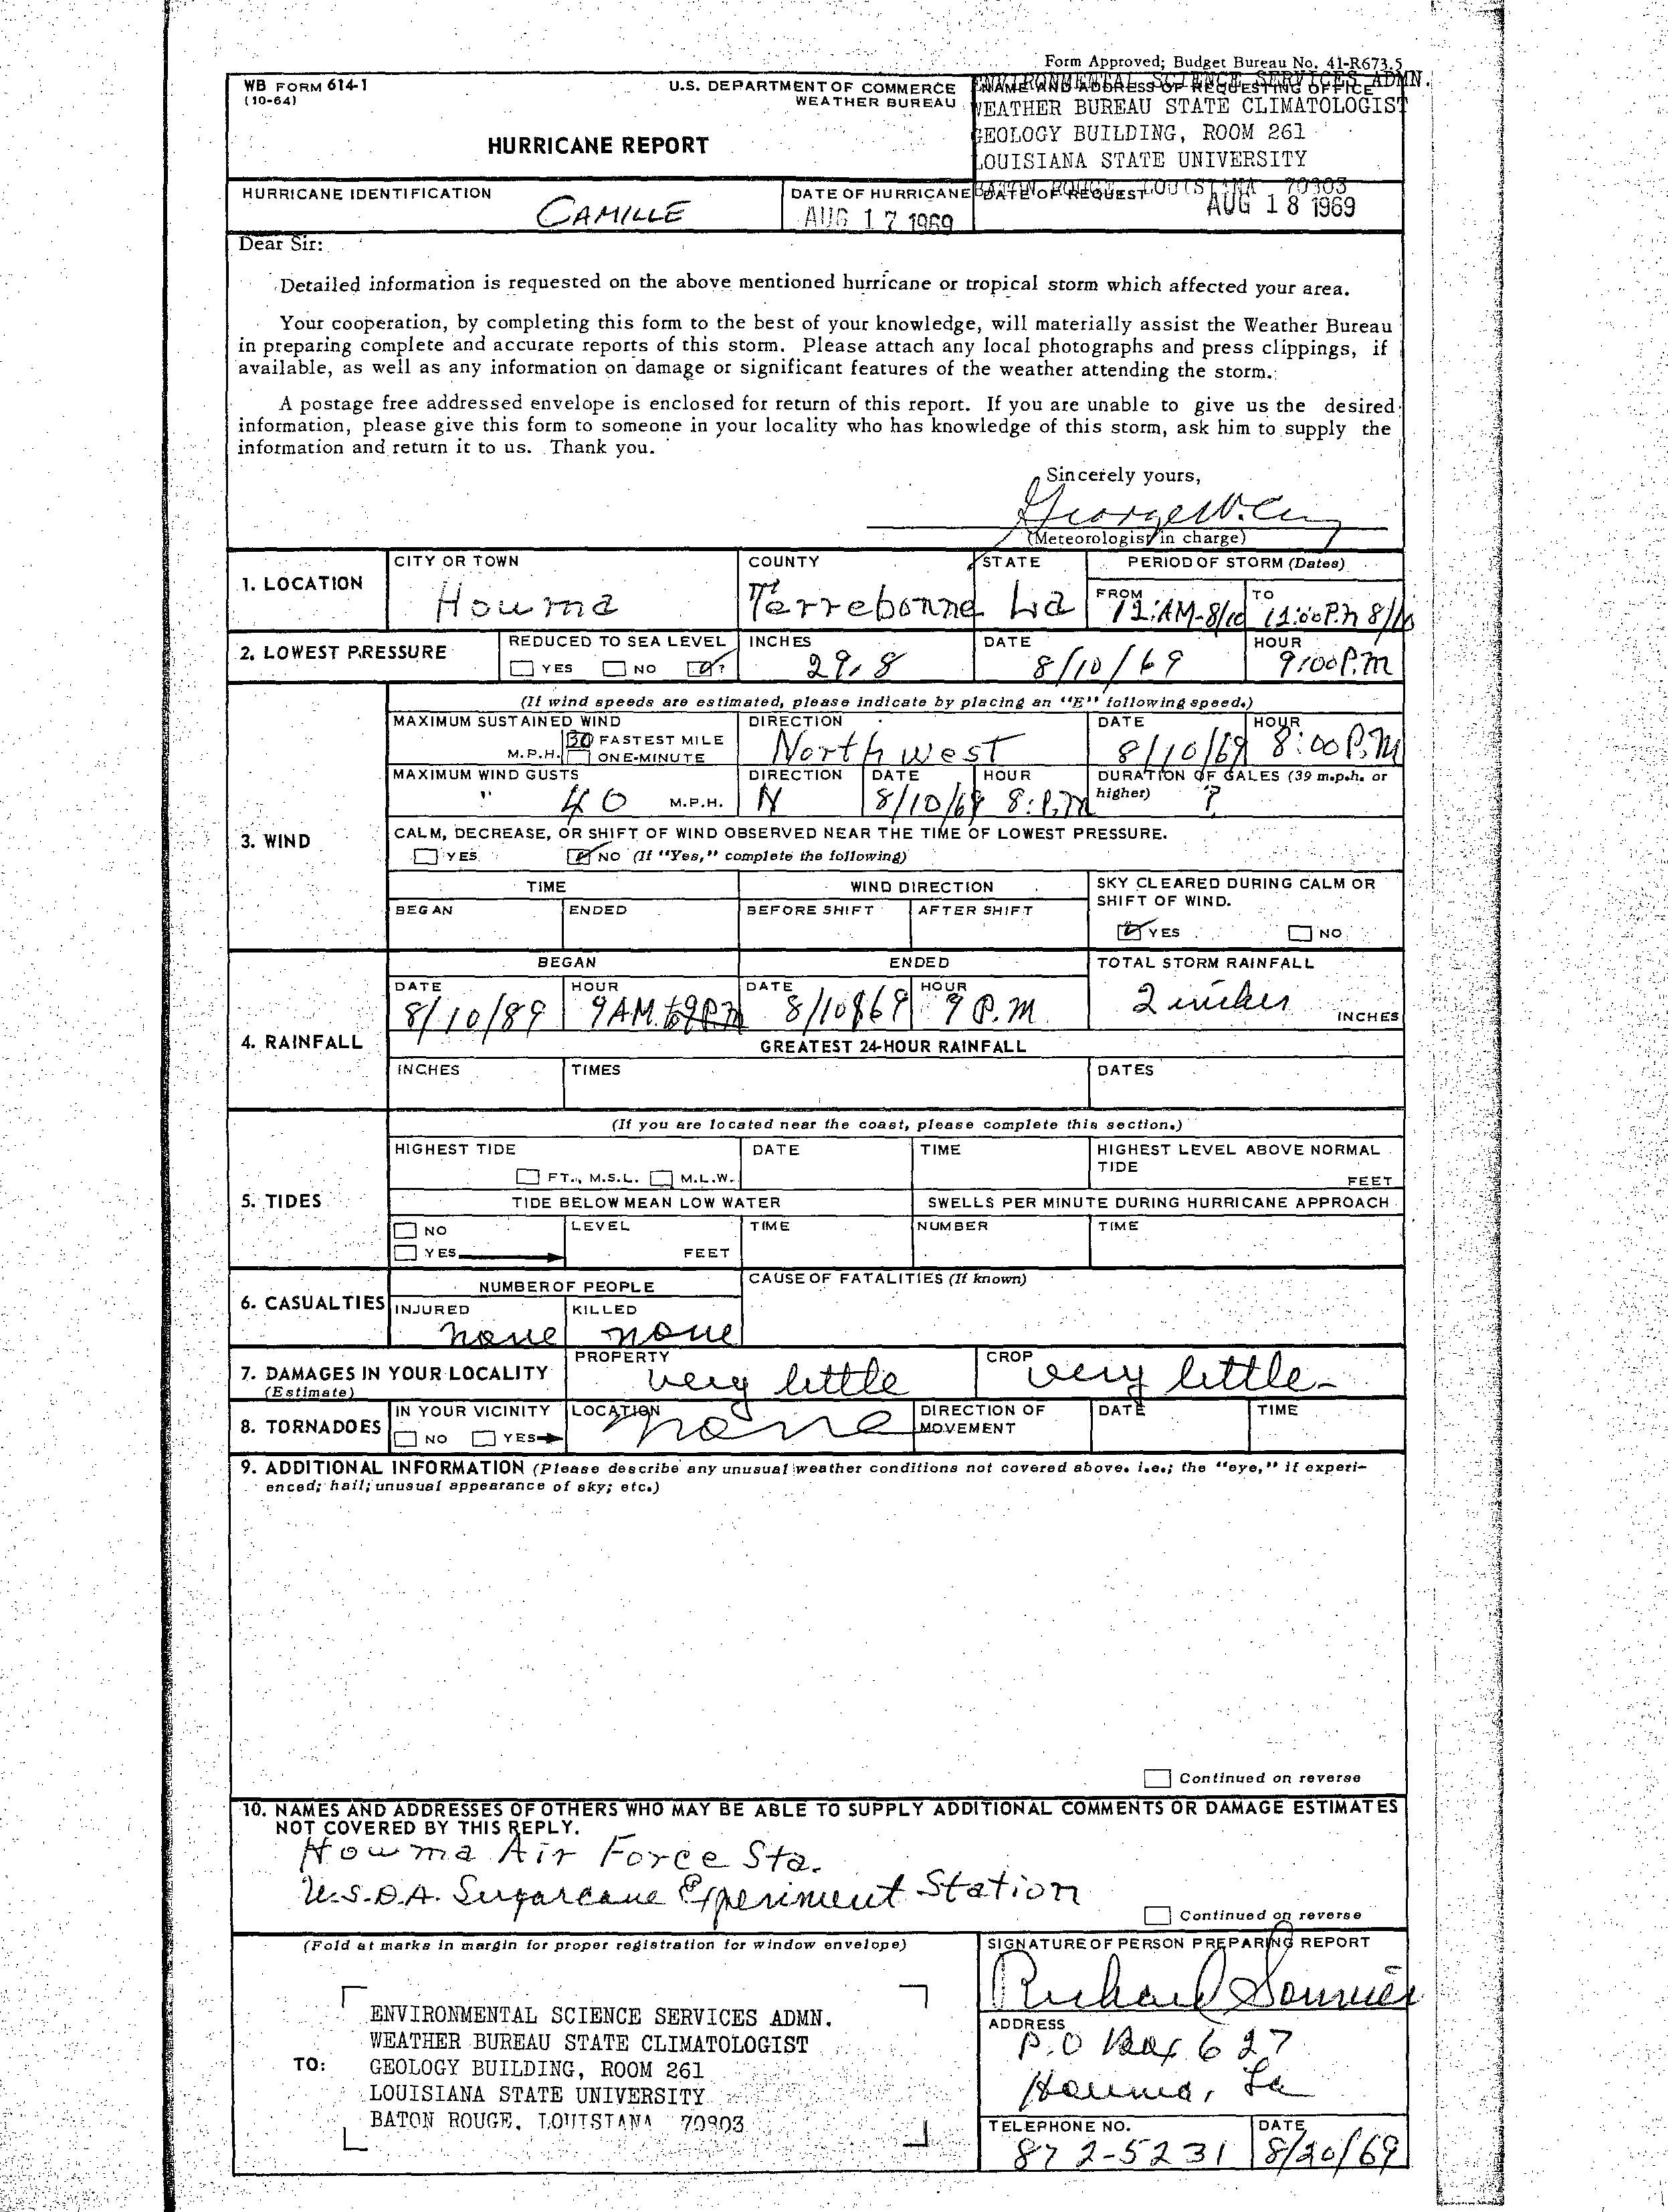 Form Approved; Budget Bureau No. 41-R673.5
WB FORM 614-1
(10-64)
U.S. DEPARTMENT OF COMMERCE
WEATHER BUREAU
HURRICANE REPORT
NAME AND ADDRESS OF REQUESTING OFFICE
ENVIRONMENTAL SCIENCE SERVICES ADMN.
WEATHER BUREAU STATE CLIMATOLOGIST
GEOLOGY BUILDING, ROOM 261
LOUISIANA STATE UNIVERSITY
BATON ROUGE, LOUISIANA 70803
HURRICANE IDENTIFICATION
CAMILLE
DATE OF HURRICANE
AUG 17 1969
DATE OF REQUEST
AUG 18 1969
Dear Sir:
Detailed information is requested on the above mentioned hurricane or tropical storm which affected your area.
Your cooperation, by completing this form to the best of your knowledge, will materially assist the Weather Bureau
in preparing complete and accurate reports of this storm. Please attach any local photographs and press clippings, if
available, as well as any information on damage or significant features of the weather attending the storm.
A postage free addressed envelope is enclosed for return of this report. If you are unable to give us the desired
information, please give this form to someone in your locality who has knowledge of this storm, ask him to supply the
information and return it to us. Thank you.
Sincerely yours,
George W.
(Meteorologist in charge)
1. LOCATION
CITY OR TOWN
Houma
COUNTY
Terrebonne
STATE
La
PERIOD OF STORM (Dates)
FROM
12:AM-8/10
TO
12:00P.M 8/10
2. LOWEST PRESSURE
REDUCED TO SEA LEVEL
YES NO ?
INCHES
29.8
DATE
8/10/69
HOUR
9:00P.M
3. WIND
(If wind speeds are estimated, please indicate by placing an "E" following speed.)
MAXIMUM SUSTAINED WIND
M.P.H. 30 FASTEST MILE
ONE-MINUTE
DIRECTION
North west
DATE
8/10/69
HOUR
8:00 P.M
MAXIMUM WIND GUSTS
" 40 M.P.H.
DIRECTION
N
DATE
8/10/69
HOUR
8:P.M
DURATION OF GALES (39 m.p.h. or
higher)
?
CALM, DECREASE, OR SHIFT OF WIND OBSERVED NEAR THE TIME OF LOWEST PRESSURE.
YES NO (If "Yes," complete the following)
TIME
BEGAN ENDED
WIND DIRECTION
BEFORE SHIFT AFTER SHIFT
SKY CLEARED DURING CALM OR
SHIFT OF WIND.
YES NO
4. RAINFALL
BEGAN
DATE
8/10/89
HOUR
9AM. to 9PM
ENDED
DATE
8/10/69
HOUR
9 P.M.
TOTAL STORM RAINFALL
2 inches INCHES
GREATEST 24-HOUR RAINFALL
INCHES TIMES DATES
5. TIDES
(If you are located near the coast, please complete this section.)
HIGHEST TIDE
FT., M.S.L. M.L.W.
DATE TIME
HIGHEST LEVEL ABOVE NORMAL
TIDE
FEET
TIDE BELOW MEAN LOW WATER
NO
YES
LEVEL
FEET
TIME
SWELLS PER MINUTE DURING HURRICANE APPROACH
NUMBER TIME
6. CASUALTIES
NUMBER OF PEOPLE
INJURED
none
KILLED
none
CAUSE OF FATALITIES (If known)
7. DAMAGES IN YOUR LOCALITY
(Estimate)
PROPERTY
very little
CROP
very little
8. TORNADOES
IN YOUR VICINITY
NO YES
LOCATION
none
DIRECTION OF
MOVEMENT
DATE TIME
9. ADDITIONAL INFORMATION (Please describe any unusual weather conditions not covered above. i.e.; the "eye," if experi-
enced; hail; unusual appearance of sky; etc.)
Continued on reverse
10. NAMES AND ADDRESSES OF OTHERS WHO MAY BE ABLE TO SUPPLY ADDITIONAL COMMENTS OR DAMAGE ESTIMATES
NOT COVERED BY THIS REPLY.
Houma Air Force Sta.
U.S.D.A. Sugarcane Experiment Station
Continued on reverse
(Fold at marks in margin for proper registration for window envelope)
TO:
ENVIRONMENTAL SCIENCE SERVICES ADMN.
WEATHER BUREAU STATE CLIMATOLOGIST
GEOLOGY BUILDING, ROOM 261
LOUISIANA STATE UNIVERSITY
BATON ROUGE, LOUISIANA 70803
SIGNATURE OF PERSON PREPARING REPORT
Richard Sonnier
ADDRESS
P.O Box 627
Houma, La
TELEPHONE NO.
872-5231
DATE
8/20/69